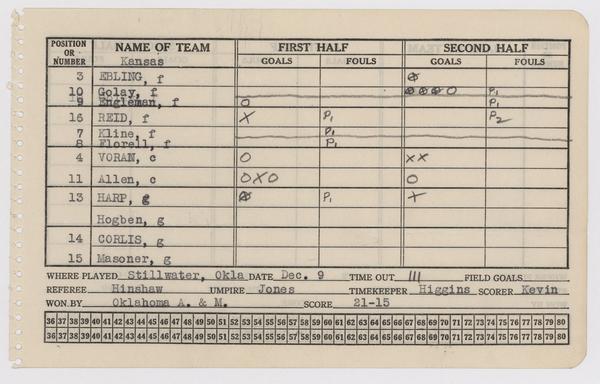 POSITION OR NUMBER NAME OF TEAM FIRST HALF SECOND HALF
Kansas GOALS FOULS GOALS FOULS
3 EBLING, f
10 Golay, f O P1
9 Engleman, f O P1
16 REID, f X P1 P2
7 Kline, f P1
8 Florell, f P1
4 VORAN, c O XX
11 Allen, c OXO O
13 HARP, g P1 X
Hogben, g
14 CORLIS, g
15 Masoner, g
WHERE PLAYED Stillwater, Okla DATE Dec. 9 TIME OUT III FIELD GOALS
REFEREE Hinshaw UMPIRE Jones TIMEKEEPER Higgins SCORER Kevin
WON BY Oklahoma A. & M. SCORE 21-15
36 37 38 39 40 41 42 43 44 45 46 47 48 49 50 51 52 53 54 55 56 57 58 59 60 61 62 63 64 65 66 67 68 69 70 71 72 73 74 75 76 77 78 79 80
36 37 38 39 40 41 42 43 44 45 46 47 48 49 50 51 52 53 54 55 56 57 58 59 60 61 62 63 64 65 66 67 68 69 70 71 72 73 74 75 76 77 78 79 80